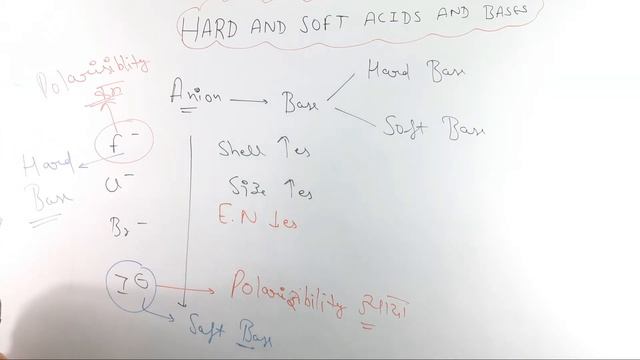 HARD AND SOFT ACIDS AND BASES
Polarisiblity
कम
Anion → Base
Hard Base
Soft Base
F⁻
Hard
Base
Cl⁻
Br⁻
I⊖
Shell ↑es
Size ↑es
E.N ↓es
Polarizibility ज्यादा
Soft Base